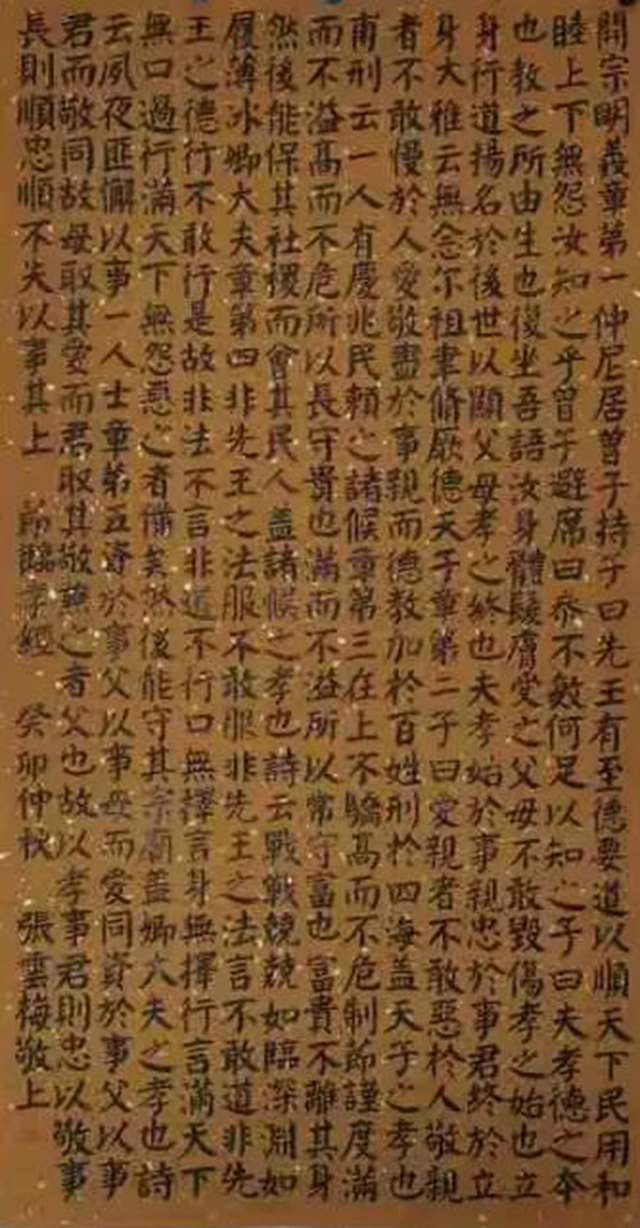 開宗明義章第一仲尼居曾子持子曰先王有至德要道以順天下民用和
睦上下無怨汝知之乎曾子避席曰參不敏何足以知之子曰夫孝德之本
也教之所由生也復坐吾語汝身體髮膚受之父母不敢毀傷孝之始也立
身行道揚名於後世以顯父母孝之終也夫孝始於事親忠於事君終於立
身大雅云無念尔祖聿脩厥德天子章第二子曰愛親者不敢惡於人敬親
者不敢慢於人愛敬盡於事親而德教加於百姓刑於四海盖天子之孝也
甫刑云一人有慶兆民賴之諸候章第三在上不驕高而不危制節謹度滿
而不溢高而不危所以長守貴也滿而不溢所以常守富也富貴不離其身
然後能保其社稷而會其民人盖諸候之孝也詩云戰戰兢兢如臨深淵如
履薄冰卿大夫章第四非先王之法服不敢服非先王之法言不敢道非先
王之德行不敢行是故非法不言非道不行口無擇言身無擇行言滿天下
無口過行滿天下無怨惡之者備矣然後能守其宗廟盖卿大夫之孝也詩
云夙夜匪懈以事一人士章第五資於事父以事母而愛同資於事父以事
君而敬同故母取其愛而君取其敬兼之者父也故以孝事君則忠以敬事
長則順忠順不失以事其上 節臨孝經 癸卯仲秋 張雲梅敬上